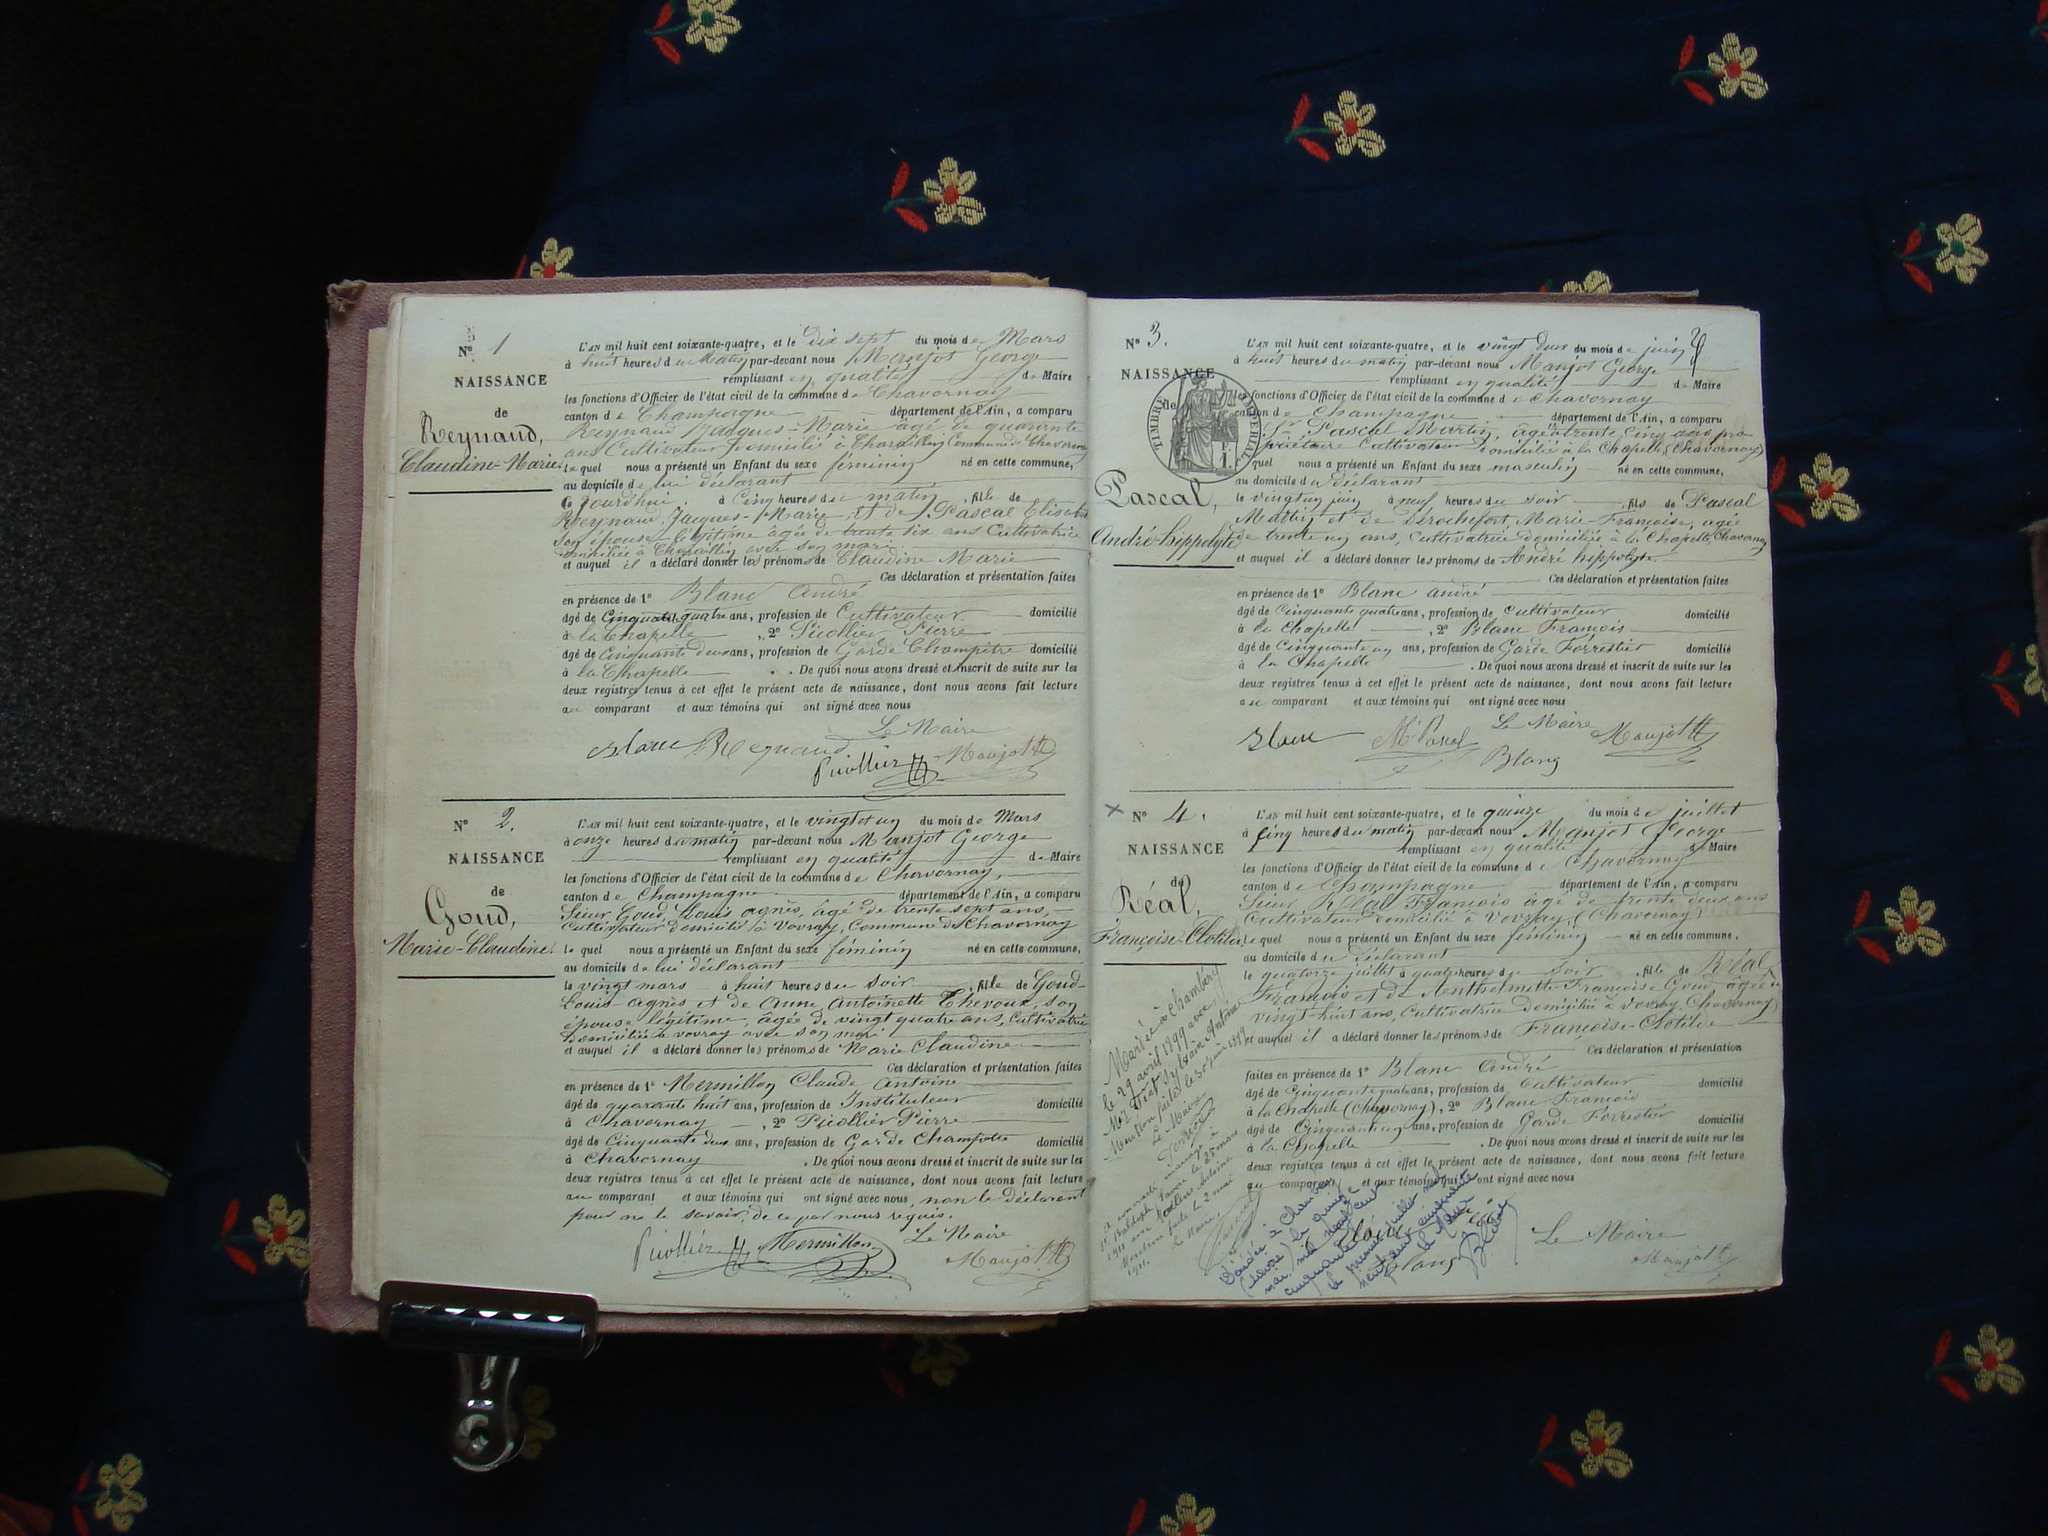 N° 1
NAISSANCE
de
Reynaud,
Claudine-Marie
L'AN mil huit cent soixante-quatre, et le dix sept du mois de Mars
à huit heures du Matin par-devant nous Manjot George
remplissant en qualité de Maire
les fonctions d'Officier de l'état civil de la commune de Chavornay
canton de Champagne département de l'Ain, a comparu
Reynaud Jacques-Marie âgé de quarante
ans Cultivateur domicilié à Commune de Chavornay
lequel nous a présenté un Enfant du sexe féminin né en cette commune,
au domicile de lui déclarant
ce jourd'hui à Cinq heures du matin, fille de
Reynaud, Jacques-Marie et de Pascal Elisabeth
son épouse légitime âgée de trente six ans Cultivatrice
domiciliée à avec son mari
et auquel il a déclaré donner les prénoms de Claudine Marie
Ces déclaration et présentation faites
en présence de 1° Blanc André
âgé de Cinquante quatre ans, profession de Cultivateur domicilié
à la Chapelle, 2° Picollier Pierre
âgé de Cinquante deux ans, profession de Garde Champêtre domicilié
à la Chapelle. De quoi nous avons dressé et inscrit de suite sur les
deux registres tenus à cet effet le présent acte de naissance, dont nous avons fait lecture
au comparant et aux témoins qui ont signé avec nous
Le Maire
Blanc Reynaud
Picollier Manjot
N° 2.
NAISSANCE
de
Goud,
Marie-Claudine.
L'AN mil huit cent soixante-quatre, et le vingt et un du mois de Mars
à onze heures du matin par-devant nous Manjot George
remplissant en qualité de Maire
les fonctions d'Officier de l'état civil de la commune de Chavornay,
canton de Champagne département de l'Ain, a comparu
Sieur Goud, Louis agnès, âgé de trente sept ans,
Cultivateur domicilié à Vovray, Commune de Chavornay
lequel nous a présenté un Enfant du sexe féminin né en cette commune,
au domicile de lui déclarant
le vingt mars à huit heures du soir, fille de Goud
Louis agnès et de Anne Antoinette Thevoux, son
épouse légitime, âgée de vingt quatre ans, Cultivatrice
domiciliée à vovray avec son mari
et auquel il a déclaré donner les prénoms de Marie Claudine
Ces déclaration et présentation faites
en présence de 1° Mermillon Claude Antoine
âgé de quarante huit ans, profession de Instituteur domicilié
à Chavornay, 2° Picollier Pierre
âgé de Cinquante deux ans, profession de Garde Champêtre domicilié
à Chavornay. De quoi nous avons dressé et inscrit de suite sur les
deux registres tenus à cet effet le présent acte de naissance, dont nous avons fait lecture
au comparant et aux témoins qui ont signé avec nous, non le déclarant
pour ne le savoir, de ce par nous réquis.
Le Maire
Picollier Mermillon Manjot
N° 3.
NAISSANCE
de
TIMBRE IMPERIAL
Pascal,
André-hippolyte
L'AN mil huit cent soixante-quatre, et le vingt deux du mois de juin
à huit heures du matin par-devant nous Manjot George
remplissant en qualité de Maire
les fonctions d'Officier de l'état civil de la commune de Chavornay
canton de Champagne département de l'Ain, a comparu
Sr Pascal Martin, âgé trente cinq ans pro
priétaire Cultivateur domicilié à la Chapelle (Chavornay)
lequel nous a présenté un Enfant du sexe masculin né en cette commune,
au domicile du déclarant
le vingt un juin à neuf heures du soir, fils de Pascal
Martin et de Dérochefort, Marie-Françoise, agée
de trente un ans, Cultivatrice domiciliée à la Chapelle, Chavornay
et auquel il a déclaré donner les prénoms de André hippolyte.
Ces déclaration et présentation faites
en présence de 1° Blanc andré
âgé de Cinquante quatre ans, profession de Cultivateur domicilié
à la Chapelle, 2° Blanc François
âgé de Cinquante un ans, profession de Garde Forrestier domicilié
à la Chapelle. De quoi nous avons dressé et inscrit de suite sur les
deux registres tenus à cet effet le présent acte de naissance, dont nous avons fait lecture
au comparant et aux témoins qui ont signé avec nous
Le Maire
Blanc M Pascal Manjot
Blanc
N° 4.
NAISSANCE
de
Réal,
Françoise-Clotilde
L'AN mil huit cent soixante-quatre, et le quinze du mois de juillet
à cinq heures du matin par-devant nous Manjot George
remplissant en qualité de Maire
les fonctions d'Officier de l'état civil de la commune de Chavornay
canton de Champagne département de l'Ain, a comparu
Sieur Réal François âgé de trente deux ans
Cultivateur domicilié à Vovray (Chavornay)
lequel nous a présenté un Enfant du sexe féminin né en cette commune,
au domicile du déclarant
le quatorze juillet à quatre heures du soir, fille de Réal
François et de Françoise Goud, agée de
vingt-huit ans, Cultivatrice domiciliée à vovray (Chavornay)
et auquel il a déclaré donner les prénoms de Françoise-Clotilde
Ces déclaration et présentation
faites en présence de 1° Blanc André
âgé de Cinquante quatre ans, profession de Cultivateur domicilié
à la Chapelle (Chavornay), 2° Blanc François
âgé de Cinquante un ans, profession de Garde Forrestier domicilié
à la Chapelle. De quoi nous avons dressé et inscrit de suite sur les
deux registres tenus à cet effet le présent acte de naissance, dont nous avons fait lecture
au comparant et aux témoins qui ont signé avec nous
Le Maire
Blanc Manjot
Mariée à Chambéry
le 29 avril 1899 avec
Mr Sylvain Antoine
Mention faite le
Le Maire
a contracté mariage à
le 25 mars
1911 avec Antoine
Mention faite le 2 mai
1911. Le Maire,
Décédée à
le quinze
mai mil neuf cent
cinquante
le premier juillet mil
neuf cent cinquante
Le Maire